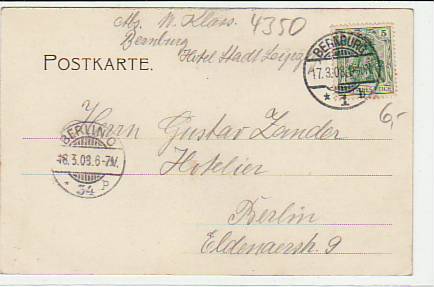 Abs. W. Klass. 4350
Bernburg
Hotel Stadt Leipzig
POSTKARTE.
BERNBURG
17.3.08.
* 1
5
6,-
Herrn Gustav Zander
BERLIN O
18.3.08.6-7V.
* 34 P
Hotelier
Berlin
Eldenaerstr. 9